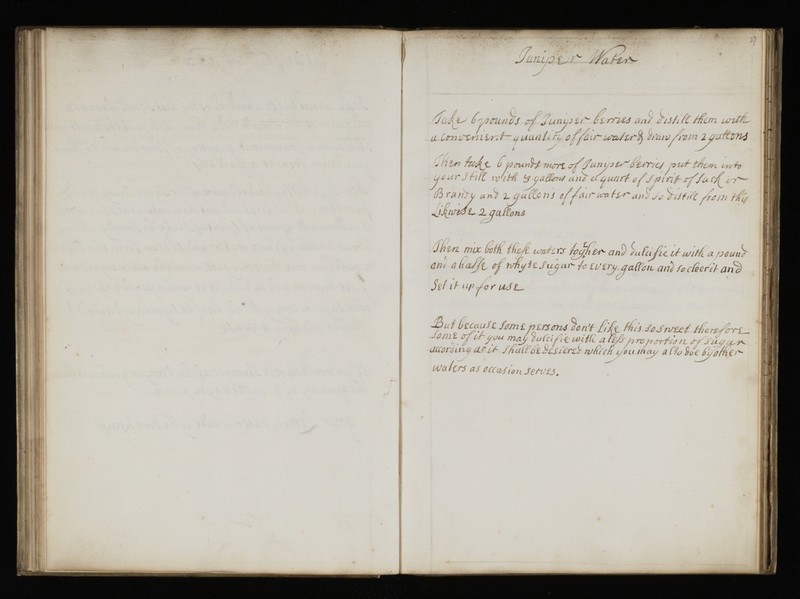 Juniper Water
Take 6 pounds of Juniper berries and distill them with
a convenient quantity of fair water & draw from 2 gallons
Then take 6 pounds more of Juniper berries put them into
your Still with gallons and a quart of Spirit of Sack or
Brandy and 2 gallons of fair water and so distill from this
Likwise 2 gallons
Then mix both these waters togher and dulcifie it with a pound
and a halfe of whyte Sugar to every gallon and so cleer it and
Set it up for use
But because some persons don't like this so sweet therefore
some of it you may dulcifie with a less proportion of Sugar
according as it shall be desiered which you may also doe by other
waters as occasion serves.